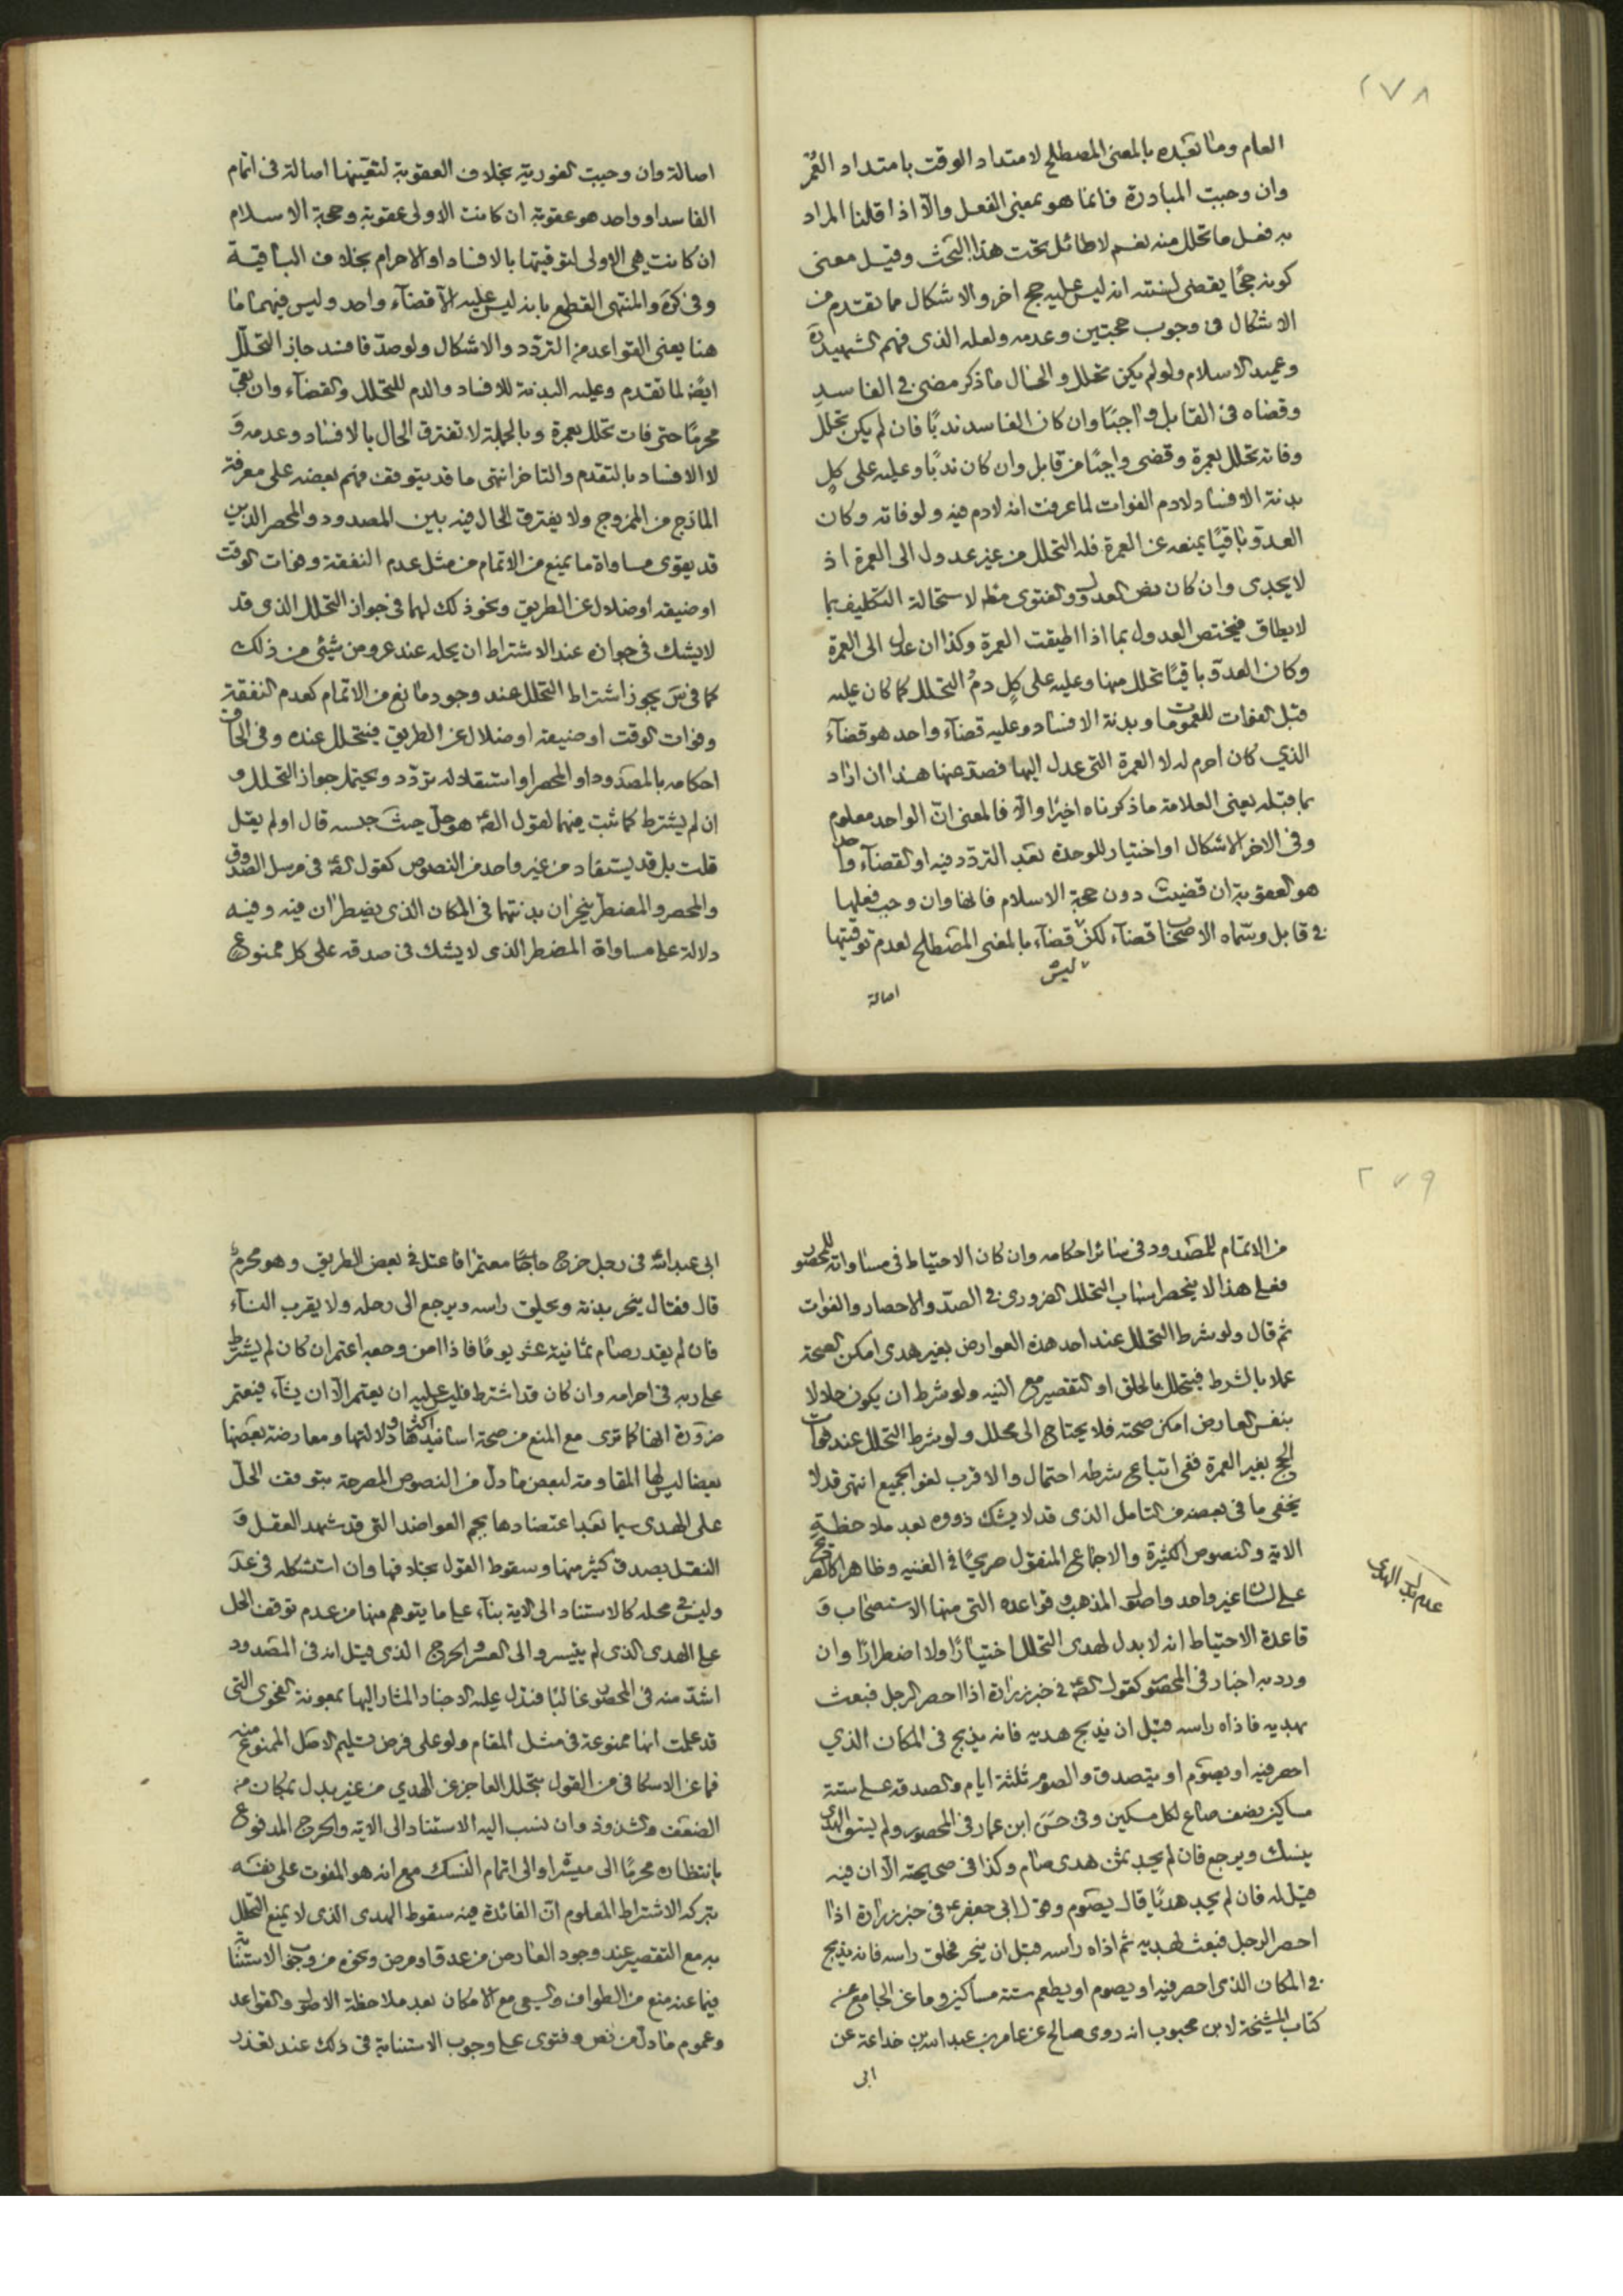 ٢٧٨
العام وما بعده بالمعنى المصطلح لامتداد الوقت بامتداد العمر
وان وجبت المبادرة فانما هو بمعنى الفعل والا اذا قلنا المراد
به فعل ما تحلل منه نعم لا طائل تحت هذا البحث وقيل معنى
كونه حجا يقضى لسنته انه ليس عليه حج اخر والاشكال مما تقدم من
الاشكال فى وجوب حجتين وعدمه ولعله الذى فهم الشهيد ره
وعميد الاسلام ولو لم يكن تحلل والحال ما ذكر مضى فى الفاسد
وقضاه فى القابل واجبًا وان كان الفاسد ندبًا فان لم يكن تحلل
وفاته تحلل بعمرة وقضى واجبًا من قابل وان كان ندبًا وعليه على كل
بدنة الافساد لا دم الفوات لما عرفت انه لا دم فيه ولو فاته وكان
العدو باقيًا يمنعه عن العمرة فله التحلل من غير عدول الى العمرة اذ
لا يجدى وان كان نص العدول والفتوى مطلقا لاستحالة التكليف بما
لا يطاق فيختص العدول بما اذا اطيقت العمرة وكذا ان عدل الى العمرة
وكان العدو باقيًا تحلل منها وعليه على كل دم التحلل كما كان عليه
قبل الفوات للعمومات وبدنة الافساد وعليه قضآء واحد هو قضآء
الذي كان احرم له لا العمرة التى عدل اليها فصد عنها هذا ان اراد
بما قبله يعنى العلامة ما ذكرناه اخيرًا والا فالمعنى ان الواحد معلوم
وفى الاخر الاشكال او اختيار للوحدة بعد التردد فيه او القضآء واحد
هو العقوبة ان قضيت دون حجة الاسلام فانها وان وجب فعلها
فى قابل وسماه الاصحاب قضآء لكن قضآء بالمعنى المصطلح لعدم توقيتها
ليس
اصالة
اصالة وان وجبت الفورية بخلاف العقوبة لتعينها اصالة فى اتمام
الفاسد او واحد هو عقوبة ان كانت الاولى عقوبة وحجة الاسلام
ان كانت هى الاولى لتوقيتها بالافساد او الاحرام بخلاف الباقية
وفى كره والمنتهى القطع بانه ليس عليه الا قضآء واحد وليس فيهما ما
هنا يعنى القواعد من التردد والاشكال ولو صد فافسد جاز التحلل
ايضًا لما تقدم وعليه البدنة للافساد والدم للتحلل والقضآء وان بقى
محرمًا حتى فات تحلل بعمرة وبالجملة لا تفترق الحال بالافساد وعدمه و
لا الافساد بالتقدم والتاخر انتهى ما قد يتوقف فهم بعضه على معرفة
الماذج من الممزوج ولا يفترق الحال فيه بين المصدود والمحصر الذين
قد يقوى مساواة ما يمنع من الاتمام من مثل عدم النفقة وفوات الوقت
او ضيقه او ضلال عن الطريق ونحو ذلك لهما فى جواز التحلل الذى قد
لا يشك فى جوازه عند الاشتراط ان يحله عند عروض شيئى من ذلك
كما فى س يجوز اشتراط التحلل عند وجود مانع من الاتمام كعدم النفقة
وفوات الوقت او ضيقه او ضلال عن الطريق فيتحلل عنده وفى الحاق
احكامه بالمصدود او المحصر او استقلاله تردد ويحتمل جواز التحلل و
ان لم يشترط كما ثبت فيهما لقول الص هو حل حيث حبسه قال او لم يقل
قلت بل قد يستفاد من غير واحد من النصوص كقول الص فى مرسل الصدوق
والمحصر والمضطر ينحران بدنتهما فى المكان الذى يضطران فيه وفيه
دلالة على مساواة المضطر الذى لا يشك فى صدقه على كل ممنوع
٢٧٩
من الاتمام للمصدود فى سائر احكامه وان كان الاحتياط فى مساواته للمحصور
فعلى هذا لا ينحصر اسباب التحلل الضرورى فى الصد والاحصار والفوات
ثم قال ولو شرط التحلل عند احد هذه العوارض بغير هدى امكن الصحة
عملا بالشرط فيتحلل بالحلق او التقصير مع النيه ولو شرط ان يكون حلالا
بنفس العارض امكن صحته فلا يحتاج الى محلل ولو شرط التحلل عند فوات
الحج بغير العمرة ففى اتباع شرطه احتمال والاقرب لغو الجميع انتهى قد لا
يخفى ما فى بعضه من التامل الذى قد لا يشك ذووه بعد ملاحظة
الاية والنصوص الكثيرة والاجماع المنقول صريحًا فى الغنيه وظاهرا كالصريح
على لسان غير واحد واصول المذهب وقواعده التى منها الاستصحاب و
قاعدة الاحتياط انه لا بدل لهدى التحلل اختيارًا ولا اضطرارًا وان
عدم بدل الهدى
ورد به اخبار فى المحصور كقول الص فى خبر زرارة اذا احصر الرجل فبعث
بهديه فاذاه راسه قبل ان يذبح هديه فانه يذبح فى المكان الذي
احصر فيه او يصوم او يتصدق والصوم ثلثة ايام والصدقة على ستة
مساكين نصف صاع لكل مسكين وفى حسن ابن عمار فى المحصور ولم يسق الهدى
ينسك ويرجع فان لم يجد ثمن هدى صام وكذا فى صحيحته الا ان فيه
قيل له فان لم يجد هديًا قال يصوم وقول ابى جعفر ع فى خبر زرارة اذا
احصر الرجل فبعث بهديه ثم اذاه راسه قبل ان ينحر فحلق راسه فانه يذبح
فى المكان الذى احصر فيه او يصوم او يطعم ستة مساكين وما عن الجامع عن
كتاب المشيخة لابن محبوب انه روى صالح عن عامر بن عبد الله بن خداعة عن
ابى
ابى عبد الله فى رجل خرج حاجًا معتمرًا فاعتل فى بعض الطريق وهو محرم
قال فقال ينحر بدنة ويحلق راسه ويرجع الى رحله ولا يقرب النسآء
فان لم يقدر صام ثمانية عشر يومًا فاذا امن وجعه اعتمر ان كان لم يشترط
على ربه فى احرامه وان كان قد اشترط فليس عليه ان يعتمر الا ان يشآء فيعتمر
ضرورة انها كما ترى مع المنع من صحة اسانيد اكثرها ودلالتها ومعارضة بعضها
بعضا ليس لها المقاومة لبعض ما دل من النصوص المصرحة بتوقف الحل
على الهدى سيما بعد اعتضادها بجم العواضد التى قد شهد العقل و
النقل بصدق كثير منها وسقوط القول بخلافها وان استشكله فى عد
وليس فى محله كالاستناد الى الاية بناء على ما يتوهم منها من عدم توقف الحل
على الهدى الذى لم يتيسر والى العسر والحرج الذى قيل انه فى المصدود
اشد منه فى المحصور غالبًا فتدل عليه الاخبار المشار اليها بمعونة الفحوى التى
قد علمت انها ممنوعة فى مثل المقام ولو على فرض تسليم الاصل الممنوع منه
فما عن الاسكافى من القول بتحلل العاجز عن الهدي من غير بدل بمكان من
الضعف والشذوذ وان نسب اليه الاستناد الى الاية والحرج المدفوع
بانتظاره محرمًا الى ميسرا والى اتمام النسك مع انه هو المفوت على نفسه
بتركه الاشتراط المعلوم ان الفائدة فيه سقوط الهدى الذى لا يمنع التحلل
به مع التقصير عند وجود العارض من عدو او مرض ونحوه من وجوب الاستنابة
فيما عنه منع من الطواف والسعى مع الامكان بعد ملاحظة الاصول والقواعد
وعموم ما دل من نص وفتوى على وجوب الاستنابة فى ذلك عند تعذر